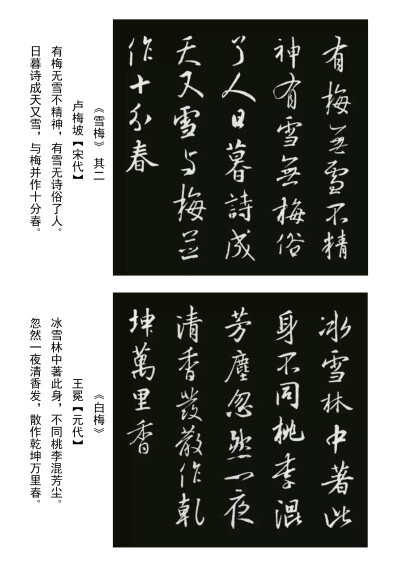 有梅無雪不精
神有雪無梅俗
了人日暮詩成
天又雪与梅並
作十分春
《雪梅》 其二
卢梅坡【宋代】
有梅无雪不精神，有雪无诗俗了人。
日暮诗成天又雪，与梅并作十分春。
冰雪林中著此
身不同桃李混
芳塵忽然一夜
清香發散作乾
坤萬里香
《白梅》
王冕【元代】
冰雪林中著此身，不同桃李混芳尘。
忽然一夜清香发，散作乾坤万里春。